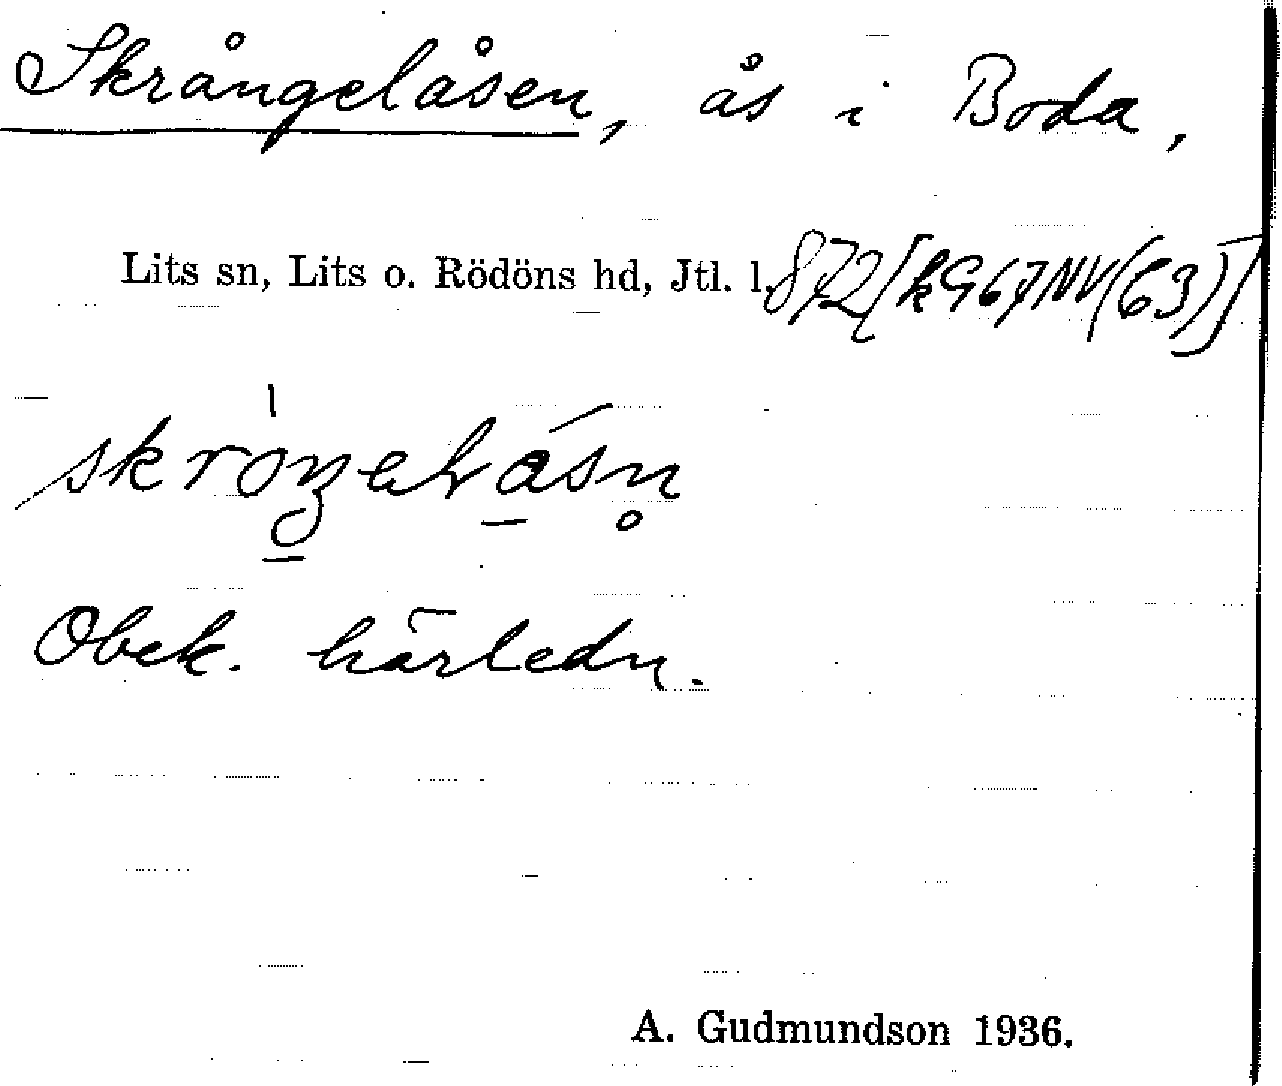 Skrångelåsen, ås i Boda,
Lits sn, Lits o. Rödöns hd, Jtl. l. 872[kG67NV(63)]
Obek. härledn.
A. Gudmundson 1936.